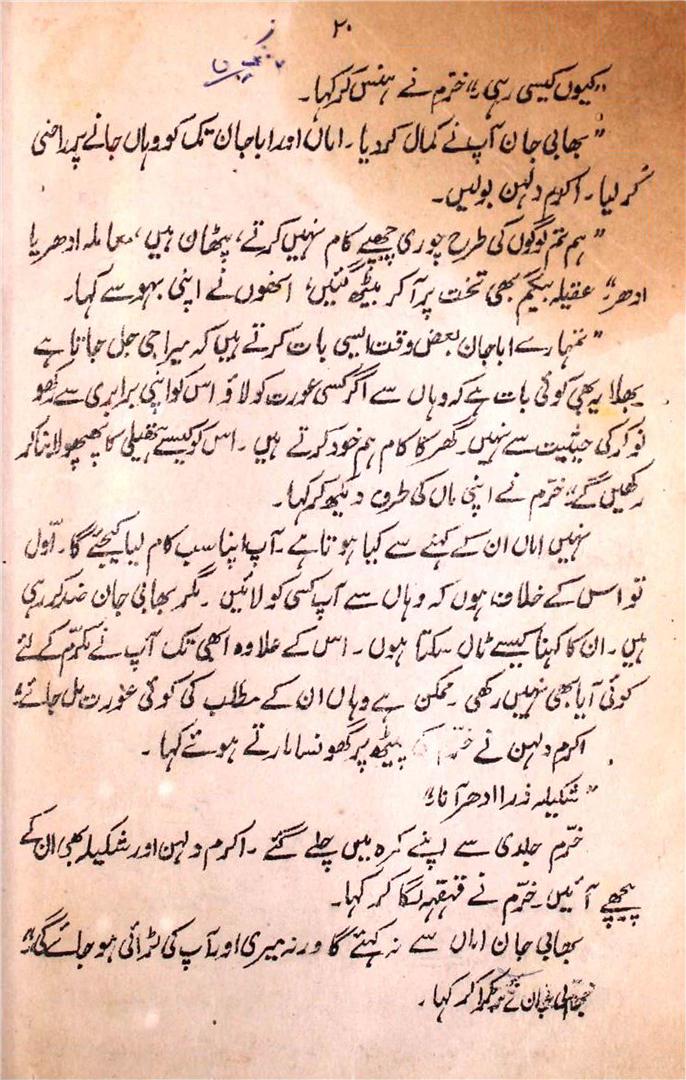 ۲۰
"کیوں کیسی رہی" خرّم نے ہنس کر کہا۔
"بھابی جان آپ نے کمال کر دیا۔ اماں اور ابا جان تک کو وہاں جانے پر راضی
کر لیا۔ اکرم دلہن بولیں۔
"ہم تم لوگوں کی طرح چوری چھپے کام نہیں کرتے، پٹھان ہیں، معاملہ ادھر یا
ادھر" عقیلہ بیگم بھی تخت پر آ کر بیٹھ گئیں، انھوں نے اپنی بہو سے کہا۔
"تمہارے ابا جان بعض وقت ایسی بات کرتے ہیں کہ میرا جی جل جاتا ہے
بھلا یہ بھی کوئی بات ہے کہ وہاں سے اگر کسی عورت کو لاؤ اس کو اپنی برابری سے رکھو
نوکر کی حیثیت سے نہیں۔ گھر کا کام ہم خود کرتے ہیں۔ اس کو کیسے ہتھیلی کا پھپھولا بنا کر
رکھیں گے" خرّم نے اپنی ماں کی طرف دیکھ کر کہا۔
نہیں اماں ان کے کہنے سے کیا ہوتا ہے۔ آپ اپنا سب کام لیا کیجئے گا۔ اوّل
تو اس کے خلاف ہوں کہ وہاں سے آپ کسی کو لائیں۔ مگر بھابی جان ضد کر رہی
ہیں۔ ان کا کہنا کیسے ٹال سکتا ہوں۔ اس کے علاوہ ابھی تک آپ نے مکرّم کے لئے
کوئی آیا بھی نہیں رکھی۔ ممکن ہے وہاں ان کے مطلب کی کوئی عورت مل جائے"
اکرم دلہن نے خرّم کی پیٹھ پر گھونسا مارتے ہوئے کہا۔
"شکیلہ ذرا ادھر آنا"
خرّم جلدی سے اپنے کمرہ میں چلے گئے۔ اکرم دلہن اور شکیلہ بھی ان کے
پیچھے آئیں۔ خرّم نے قہقہہ لگا کر کہا۔
بھابی جان اماں سے نہ کہئے گا ورنہ میری اور آپ کی لڑائی ہو جائے گی"
جان نے کر کہا۔